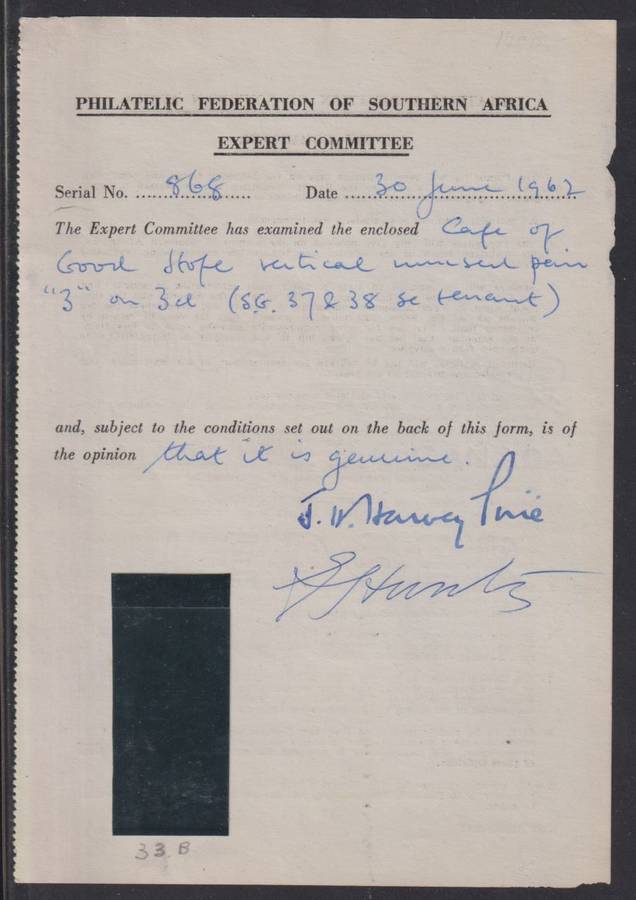 PHILATELIC FEDERATION OF SOUTHERN AFRICA
EXPERT COMMITTEE
Serial No. 868 Date 30 June 1962
The Expert Committee has examined the enclosed Cape of
Good Hope vertical unused pair
"3" on 3d (S.G. 37 & 38 se tenant)
and, subject to the conditions set out on the back of this form, is of
the opinion that it is genuine.
J. H. Harvey Pirie
33 B